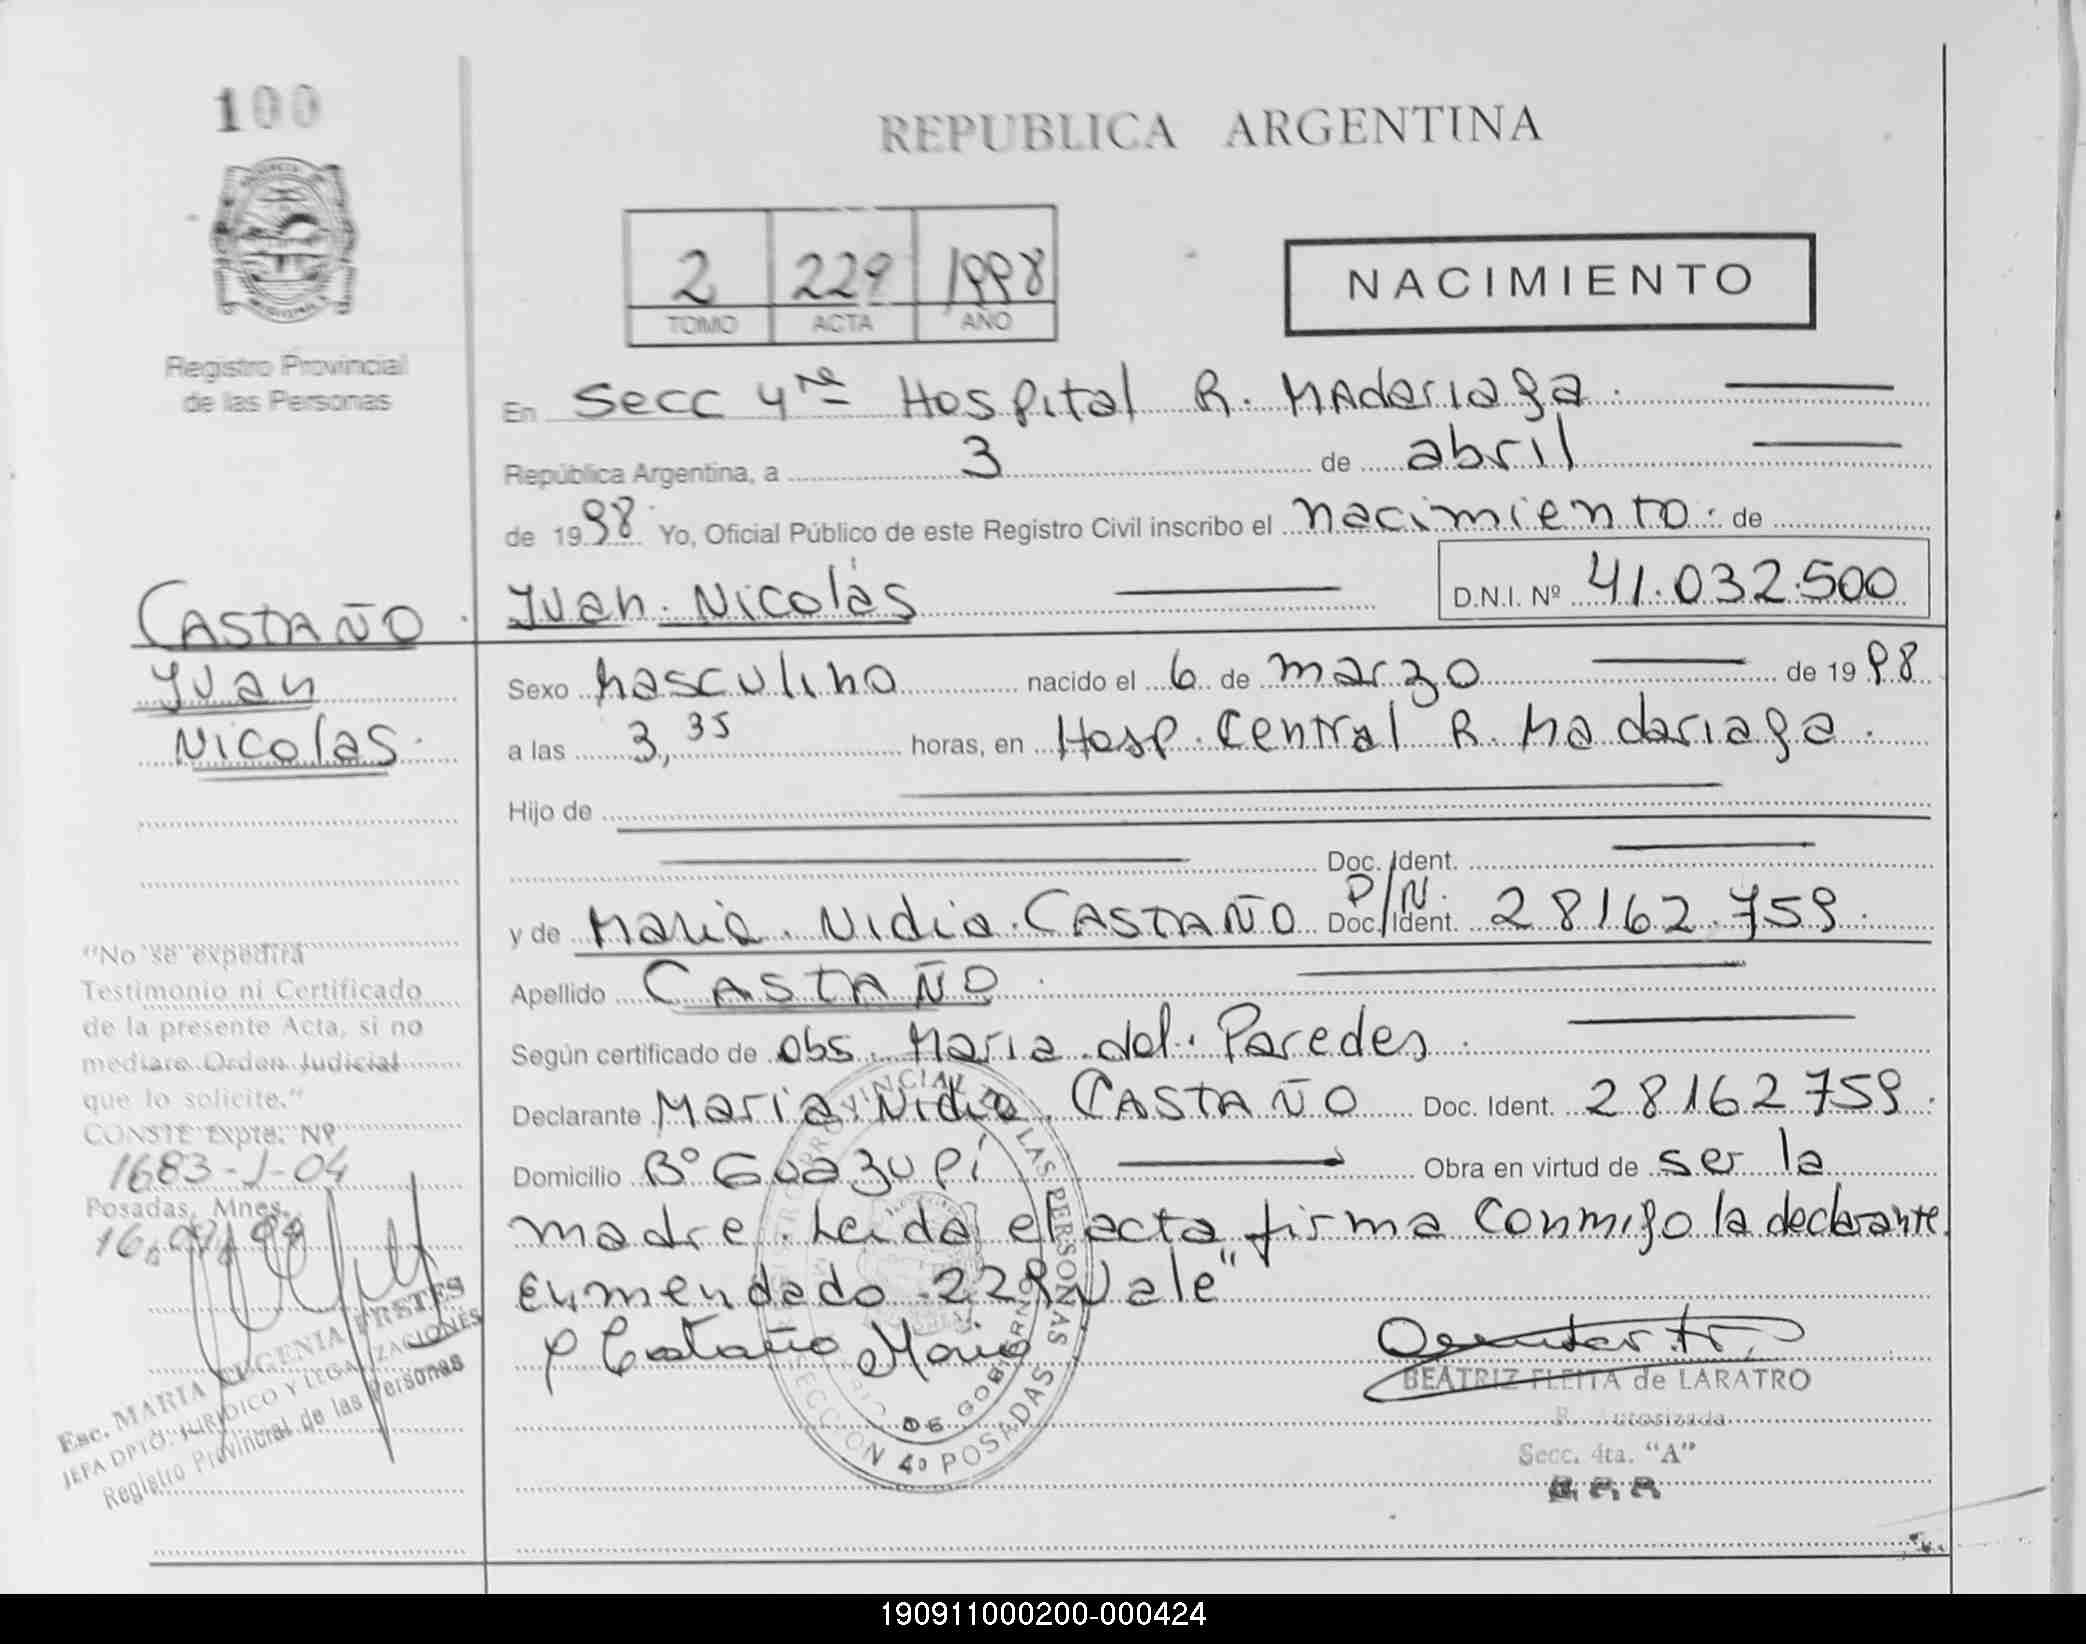 100
REPUBLICA ARGENTINA
2 229 1998
TOMO ACTA AÑO
NACIMIENTO
Registro Provincial
de las Personas
En Secc 4ta Hospital R. Madariaga.
República Argentina, a 3 de abril
de 1998 Yo, Oficial Público de este Registro Civil inscribo el nacimiento. de
Juan Nicolás
D.N.I. Nº 41.032.500
CASTAÑO.
Juan
Nicolas.
Sexo Masculino nacido el 6 de marzo de 1998
a las 3,35 horas, en Hosp. Central R. Madariaga.
Hijo de
Doc. Ident.
D/N.
y de Maria. Nidia. CASTAÑO Doc. Ident. 28162.759.
Apellido CASTAÑO.
Según certificado de Obs. Maria del. Paredes.
Declarante Maria Nidia. CASTAÑO Doc. Ident. 28162759.
Domicilio Bº Guazupí Obra en virtud de ser la
madre. Leida el acta, firma conmigo la declarante.
"Enmendado 229 Vale"
Castaño Maria
"No se expedirá
Testimonio ni Certificado
de la presente Acta, si no
mediare Orden Judicial
que lo solicite."
CONSTE Expte. Nº
1683-J-04
Posadas, Mnes.
Esc. MARIA EUGENIA PRSTES
JEFA DPTO. JURIDICO Y LEGALIZACIONES
Registro Provincial de las Personas
PROVINCIAL DE LAS PERSONAS
DE GOBIERNO
SECCION 4ª POSADAS
BEATRIZ FLEITA de LARATRO
R. Autorizada
Secc. 4ta. "A"
190911000200-000424